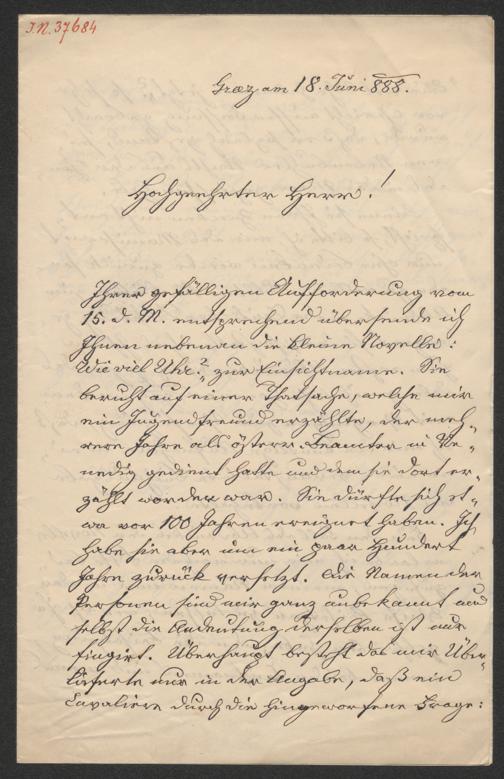 I.N. 37684
Graz am 18. Juni 888.
Hochgeehrter Herr!
Ihrer gefälligen Aufforderung vom
15. d. M. entsprechend übersende ich
Ihnen nebenan die kleine Novelle:
Wie viel Uhr? zur Einsichtname. Sie
beruht auf einer Thatsache, welche mir
ein Jugendfreund erzählte, der meh-
rere Jahre als österr. Beamter in Ve-
nedig gedient hatte und dem sie dort er-
zählt worden war. Sie dürfte sich et-
wa vor 100 Jahren ereignet haben. Ich
habe sie aber um ein paar Hundert
Jahre zurück versetzt. Die Namen der
Personen sind mir ganz unbekannt und
selbst die Andeutung derselben ist nur
fingirt. Überhaupt besteht das mir Über-
lieferte nur in der Angabe, daß ein
Cavaliere durch die hingeworfene Frage: